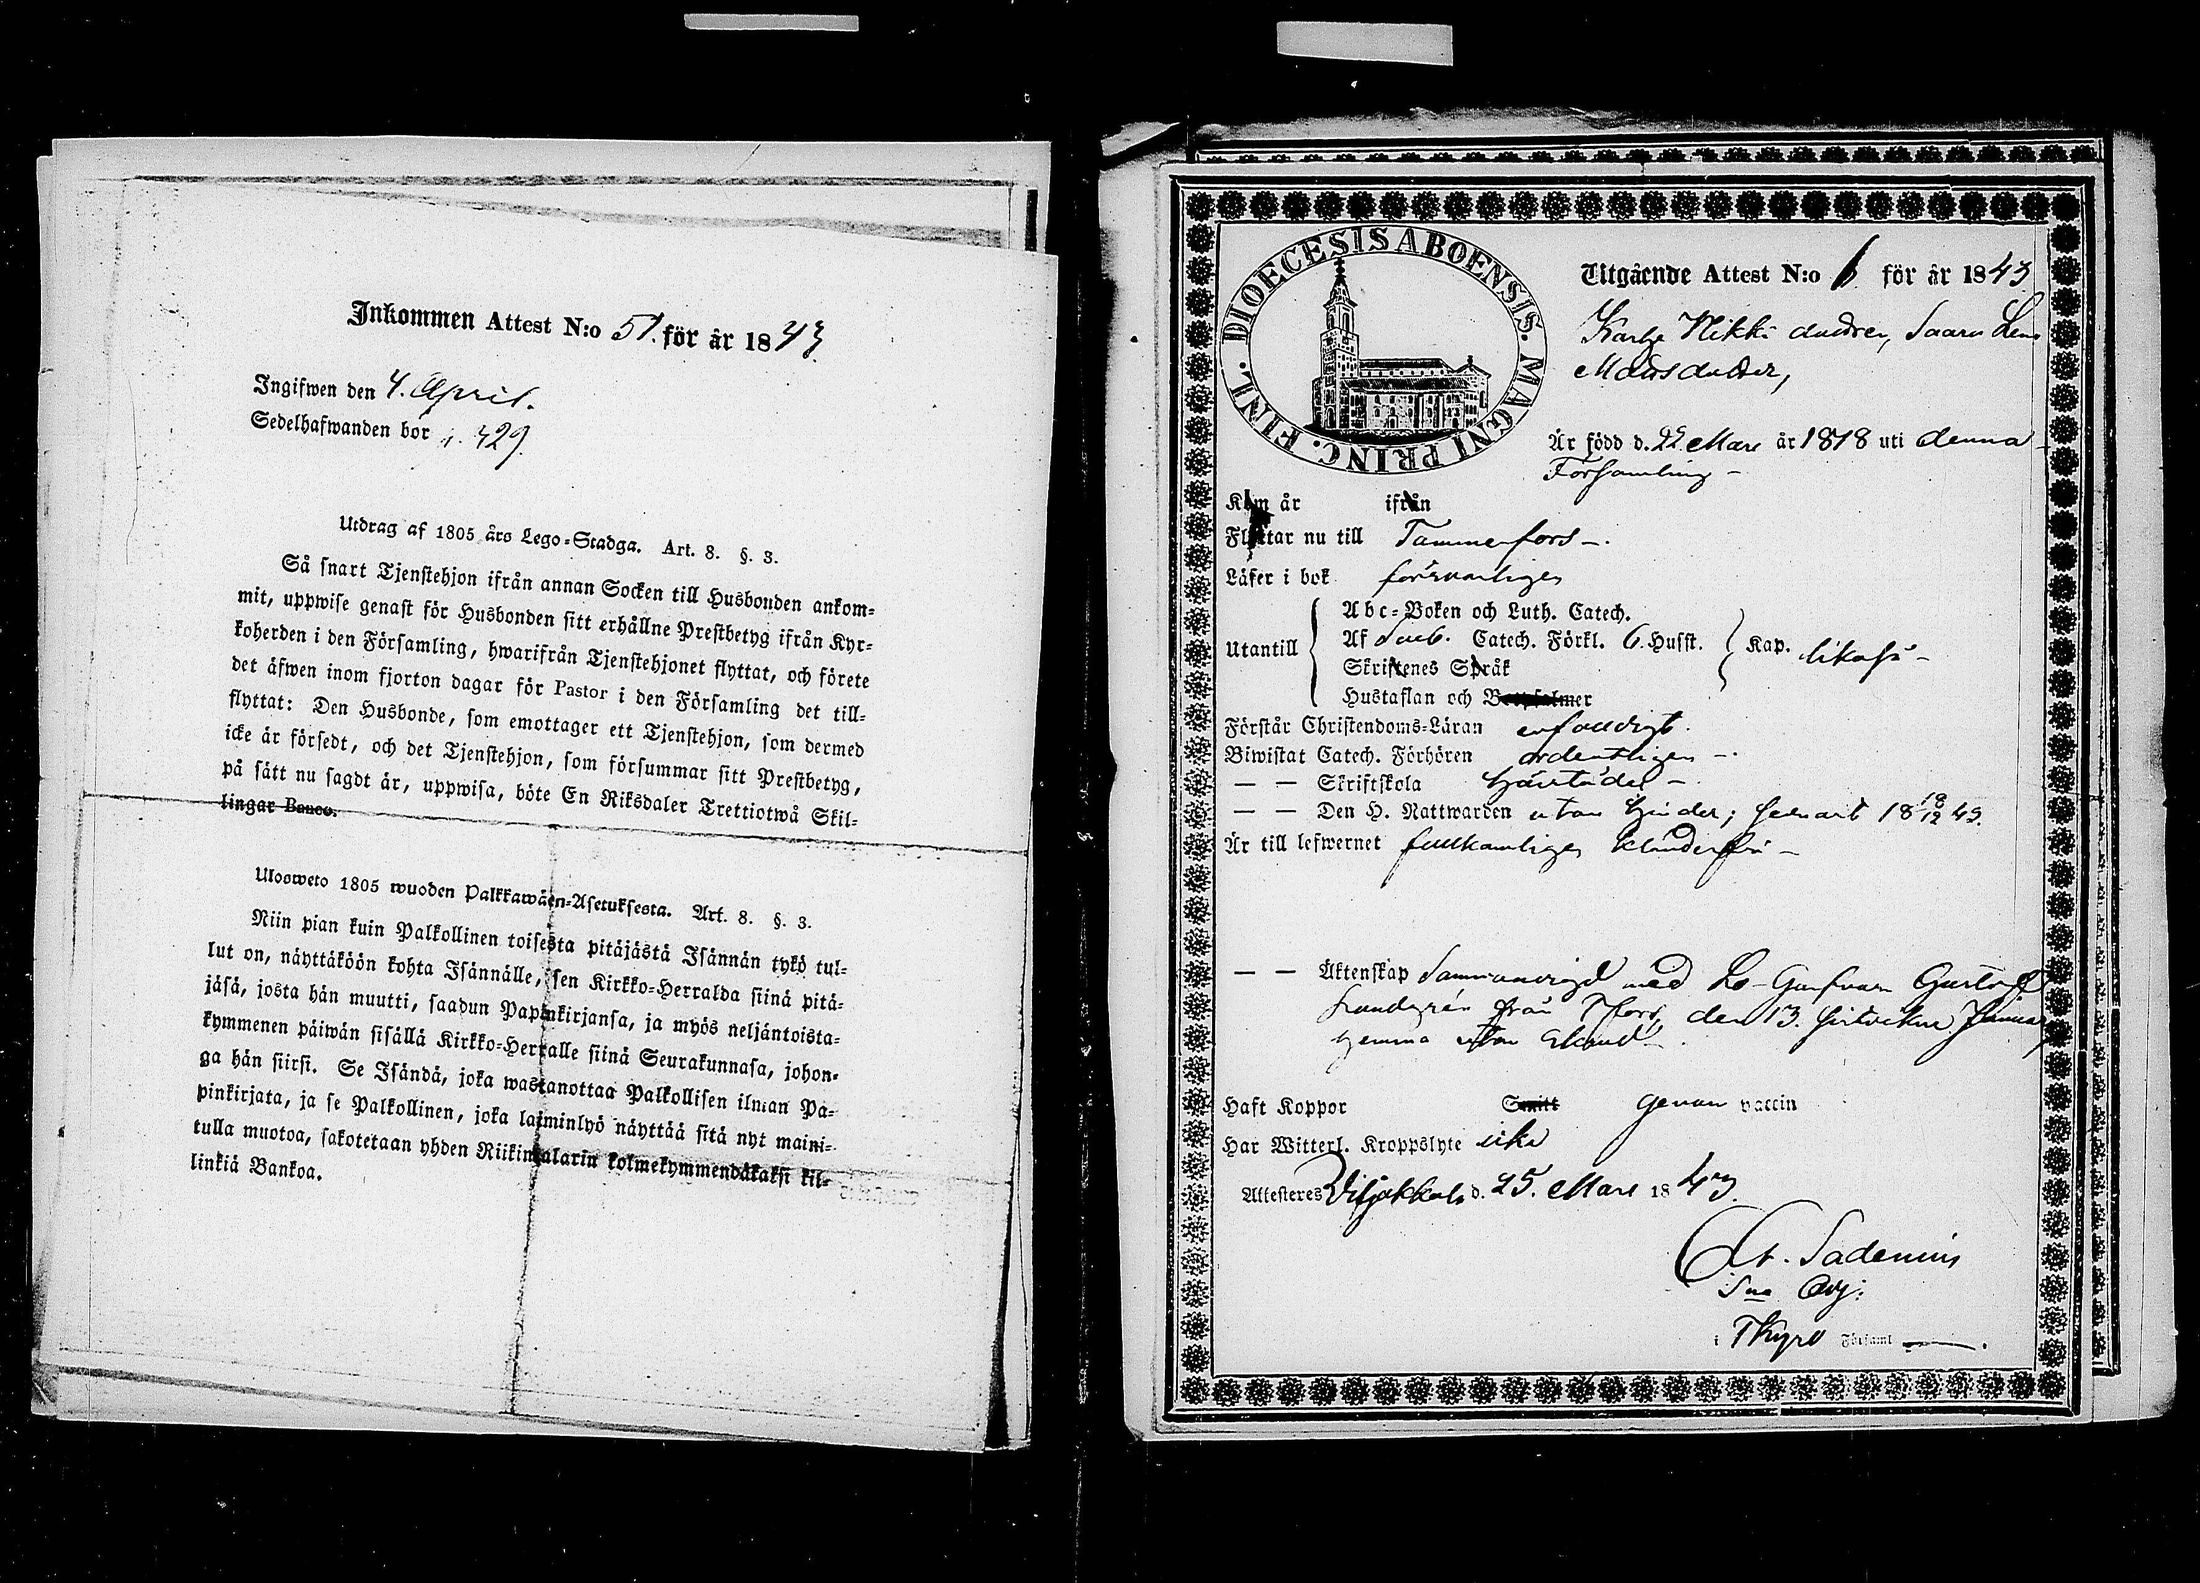 Inkommen Attest N:o 51. för år 1843.
Ingifwen den 4. April.
Sedelhafwanden bor i. 429.
Utdrag af 1805 års Lego-Stadga. Art. 8. §. 3.
Så snart Tjenstehjon ifrån annan Socken till Husbonden ankom-
mit, uppwise genast för Husbonden sitt erhållne Prestbetyg ifrån Kyr-
koherden i den Församling, hwarifrån Tjenstehjonet flyttat, och förete
det äfwen inom fjorton dagar för Pastor i den Församling det till-
flyttat: Den Husbonde, som emottager ett Tjenstehjon, som dermed
icke är försedt, och det Tjenstehjon, som försummar sitt Prestbetyg,
på sätt nu sagdt är, uppwisa, böte En Riksdaler Trettiotwå Skil-
lingar Banco.
Ulosweto 1805 wuoden Palkkawäen-Asetuksesta. Art. 8. §. 3.
Niin pian kuin Palkollinen toisesta pitäjästä Isännän tykö tul-
lut on, näyttäköön kohta Isännälle, sen Kirkko-Herralda siinä pitä-
jäsä, josta hän muutti, saadun Papinkirjansa, ja myös neljäntoista-
kymmenen päiwän sisällä Kirkko-Herralle siinä Seurakunnasa, johon-
ga hän siirsi. Se Isändä, joka wastanottaa Palkollisen ilman Pa-
pinkirjata, ja se Palkollinen, joka laiminlyö näyttää sitä nyt maini-
tulla muotoa, sakotetaan yhden Riikintalarin kolmekymmendäkaksi kil-
linkiä Bankoa.
DIOECESIS ABOENSIS. MAGNI PRINC. FINL.
Utgående Attest N:o 6 för år 1843
Nikki dottren, Saara Lena
Matsdotter,
Är född d. 22 Mars år 1818 uti denna
Församling -
Kom år ifrån
Flyttar nu till Tammerfors -.
Läser i bok försvarligen
Utantill
Abc-Boken och Luth. Catech.
Af Catech. Förkl. 6. Husst.
Skriftenes Språk
Hustaflan och Botpsalmer
Kap. likaså -
Förstår Christendoms-Läran enfaldigt.
Biwistat Catech. Förhören ordentligen -.
— — Skriftskola härstädes -.
— — Den H. Nattwarden utan hinder; senast 18 18/12 42.
Är till lefwernet fullkomligen klanderfri -
— — Äktenskap Sammanvigd med Gustaf
Lundgrén från Tfors, den 13. sistvikne Januar.
hemma utan
Haft Koppor Smitt genom vaccin
Har Witterl. Kroppslyte icke
Attesteres Viljakkala d. 25. Mars 1843.
Sadenius
Sac. Adj:
i TKyro Församl —.